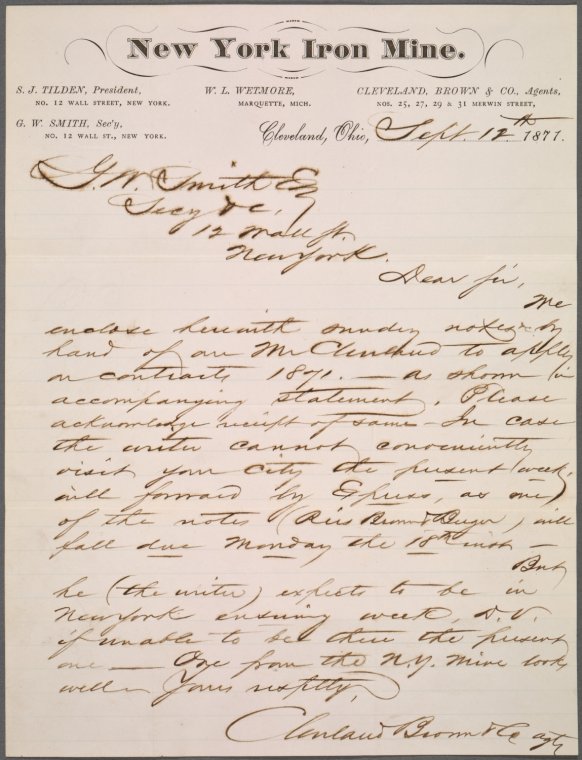 New York Iron Mine.
S. J. TILDEN, President,
NO. 12 WALL STREET, NEW YORK.
W. L. WETMORE,
MARQUETTE, MICH.
CLEVELAND, BROWN & CO., Agents,
NOS. 25, 27, 29 & 31 MERWIN STREET,
G. W. SMITH, Sec'y,
NO. 12 WALL ST., NEW YORK.
Cleveland, Ohio, Sept. 12th 1871.
G. W. Smith Esq
Secy &c,
12 Wall St.
New York.
Dear Sir,
We
enclose herewith sundry notes by
hand of our Mr Cleveland to apply
on contracts 1871. — as shown in
accompanying statement. Please
acknowledge receipt of same — In case
the writer cannot conveniently
visit your City the present week,
will forward by Express, as one
of the notes (Reis Brown & Berger) will
fall due Monday the 18th inst —
But
he (the writer) expects to be in
New York ensuing week, D.V.
if unable to be there the present
one — Ore from the N.Y. Mine looks
well — Yours respftly,
Cleveland Brown & Co agts